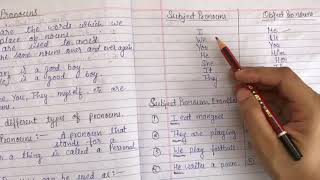 Pronouns
are the words which we
place of nouns
are used to avoid
same nouns over and over again
He is a good boy.
You, They, Myself. etc are
different types of pronouns.
Pronoun :— A pronoun that
stands for
a thing is called a Personal
can be used as :—
Subject Pronouns
I
We
You
He
She
It
They
Object Pronouns
Me
Us
You
Him
Her
It
Subject Pronouns Examples
① I eat mangoes
② They are playing
③ We play football
④ He writes a poem.